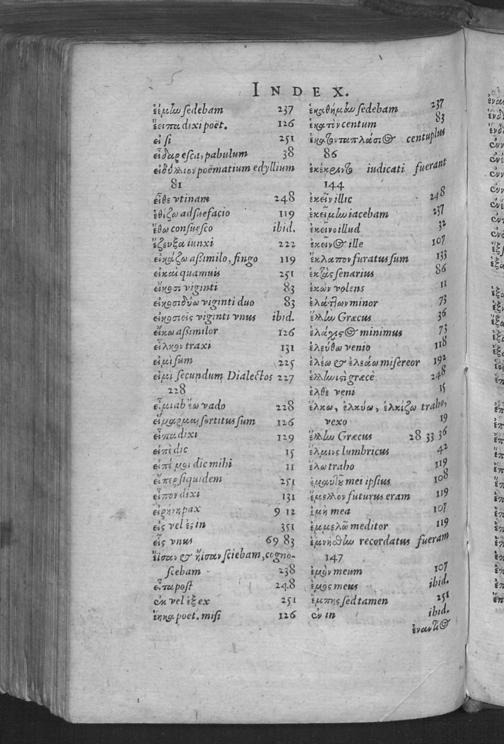 INDEX.
sedebam 237
dixi poët. 126
εἰ si 251
εἶδαρ esca, pabulum 38
εἰδύλλιον poëmatium edyllium
81
εἴθε vtinam 248
ἐθίζω adsuefacio 119
ἔθω consuesco ibid.
ἔζευξα iunxi 222
εἰκάζω aßimilo, fingo 119
quamuis 251
εἴκοσι viginti 83
εἰκοσιδύω viginti duo 83
εἰκοσιεῖς viginti vnus ibid.
εἴκω aßimilor 126
εἷλκον traxi 131
εἰμὶ sum 225
εἰμὶ secundum Dialectos 227
228
εἶμι ab ἕω vado 228
εἵμαρμαι sortitus sum 126
εἶπα dixi 129
εἰπὲ dic 15
εἰπέ μοι dic mihi 11
εἴπερ siquidem 251
εἶπον dixi 131
εἰρήνη pax 9 12
εἰς vel ἐς in 351
εἷς vnus 69 83
εἴεισαν & ᾔεισαν sciebam, cogno-
scebam 238
εἶτα post 248
ἐκ vel ἐξ ex 251
ἕηκα poet. misi 126
ἐκαθήμην sedebam 237
ἑκατὸν centum 83
ἑκατονταπλάσιος centuplus
86
iudicati fuerant
144
ἐκεῖ illic 248
ἐκείμην iacebam 237
ἐκεῖνο illud 32
ἐκεῖνος ille 107
ἔκλαπον furatus sum 133
ἑκτὰς senarius 86
ἑκὼν volens 11
ἐλάττων minor 73
ἕλλην Græcus 36
ἐλάχιστος minimus 73
ἐλεύθω venio 118
ἐλέω & ἐλεάω misereor 192
ἑλληνιστὶ græcè 248
ἐλθὲ veni 15
ἕλκω, ἑλκύω, ἑλκίζω traho,
vexo 19
ἕλλην Græcus 28 33 36
ἕλμινς lumbricus 42
ἕλω traho 119
ἐμαυτοῦ mei ipsius 108
ἔμελλον futurus eram 119
ἐμὴ mea 107
ἐμμελῶ meditor 119
ἐμνήσθην recordatus fueram
147
ἐμὸν meum 107
ἐμὸς meus ibid.
ἔμπης sed tamen 251
ἐν in ibid.
ἐναντίος